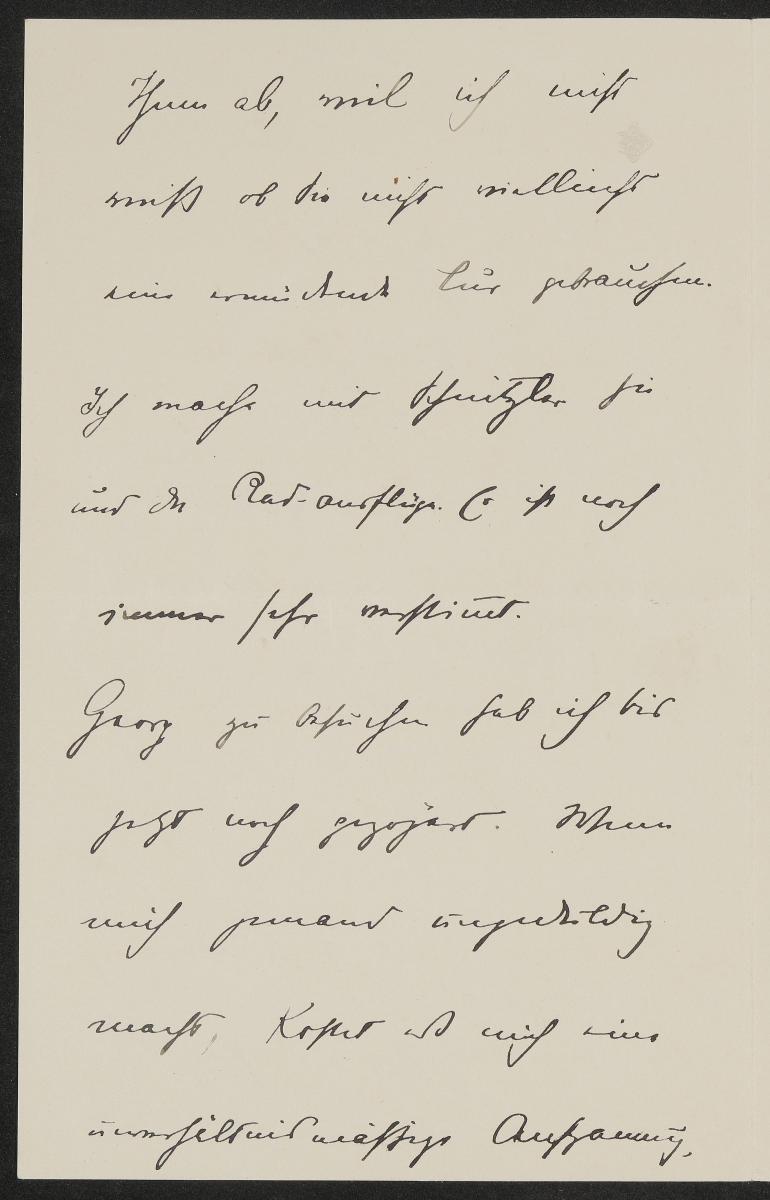 Ihnen ab, weil ich nicht
weiß ob Sie nicht vielleicht
eine ermüdende Cur gebrauchen.
Ich mache mit Schnitzler hie
und da Rad-ausflüge. Er ist noch
immer sehr verstimt.
Georg zu besuchen hab ich bis
jetzt noch gezögert. Wenn
mich jemand ungeduldig
macht, kostet es mich eine
unverhältnismäßige Anspannung,